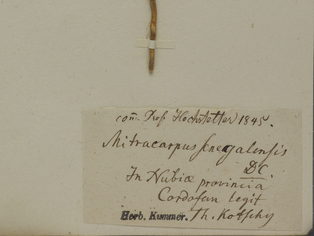 com. Prof. Hochstetter 1845.
Mitracarpus senegalensis
DC.
In Nubiæ provincia
Cordofan legit
Herb. Kummer. Th. Kotschy